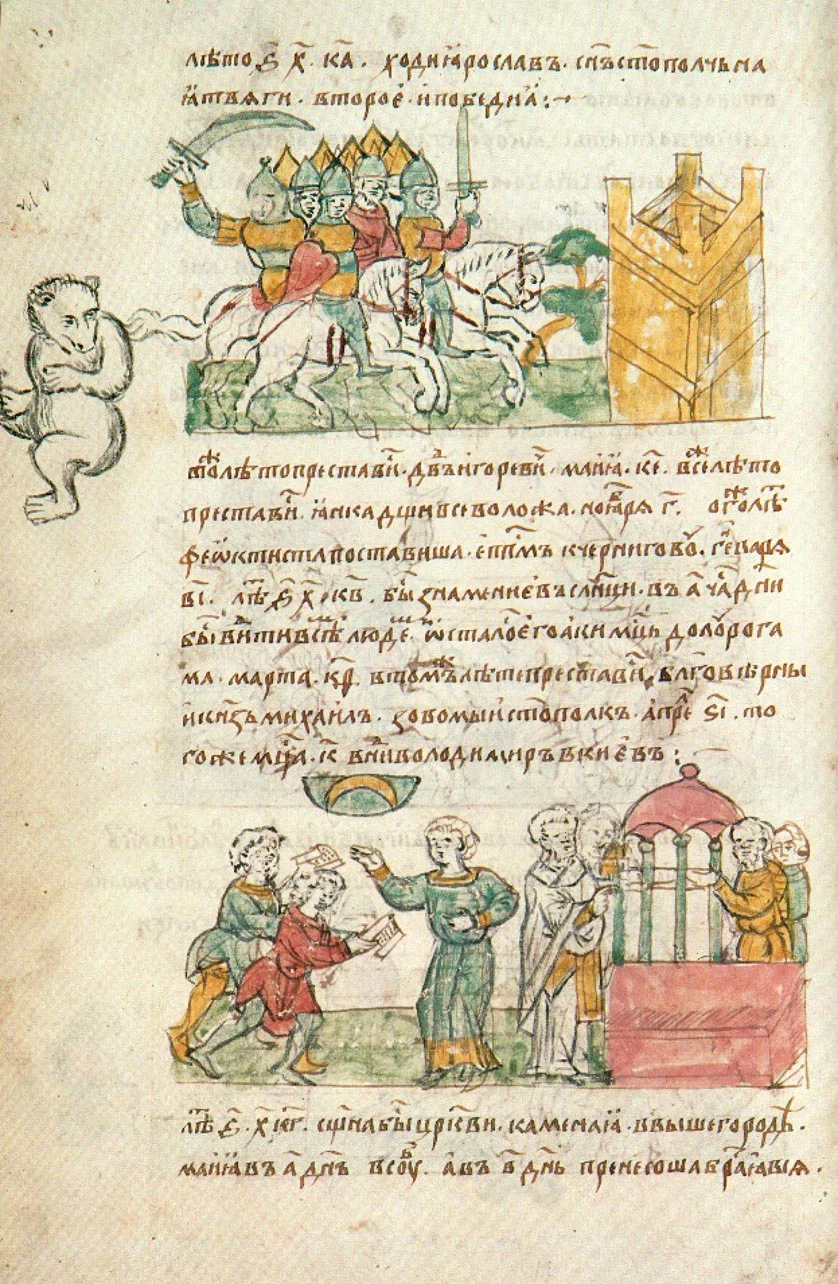 лѣто ҂ѕ҃ х҃ ка҃ · ходи ꙗрославъ · сн҃ъ ст҃ополчь на
ꙗтвѧги · второе · и побѣди ꙗ :·~
в то ж лѣто престави · дв҃дъ игоревич · маиꙗ · ке҃ · в се ж лѣто
престави · ꙗнка дщи всеволожа · ноꙗбрѧ г҃ · о того ж лѣт
феѡктиста поставиша · еп҃пмъ к чернигову · генварѧ
в҃і · лѣт ҂ѕ҃ х҃ кв҃ · бы знамение въ слн҃ци · въ а҃ ча д҃ни
бы видити всѣм людем · ѡстало его аки мц҃ь долу рога
ма · марта · кѳ҃ · в том ж лѣте престави · бл҃говѣрны
и кнѧзь михаилъ · зовомыи ст҃ополк · апре ѕ҃і · то
го же мц҃а · к҃ вниде володимиръ в киевъ : ~
лѣт ҂ѕ҃ · х҃ кг҃ · сщ҃на бы цр҃кви · каменаꙗ · в вышегородѣ ·
маиꙗ въ а҃ дн҃ь в суб · а въ в҃ дн҃ь пренесоша